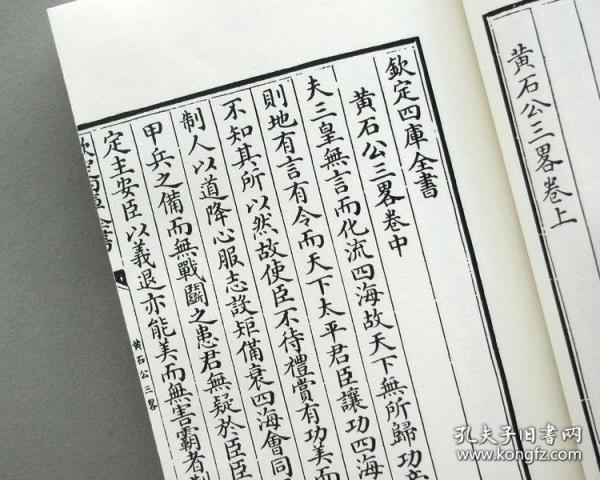 黄石公三畧卷上
欽定四庫全書
黄石公三畧卷中
夫三皇無言而化流四海故天下無所歸功帝
則地有言有令而天下太平君臣讓功四海
不知其所以然故使臣不待禮賞有功美而
制人以道降心服志設矩備衰四海會同
甲兵之備而無戰鬭之患君無疑於臣臣
定主安臣以義退亦能美而無害霸者制
欽定四庫全書
黄石公三畧
孔夫子旧书网
www.kongfz.com